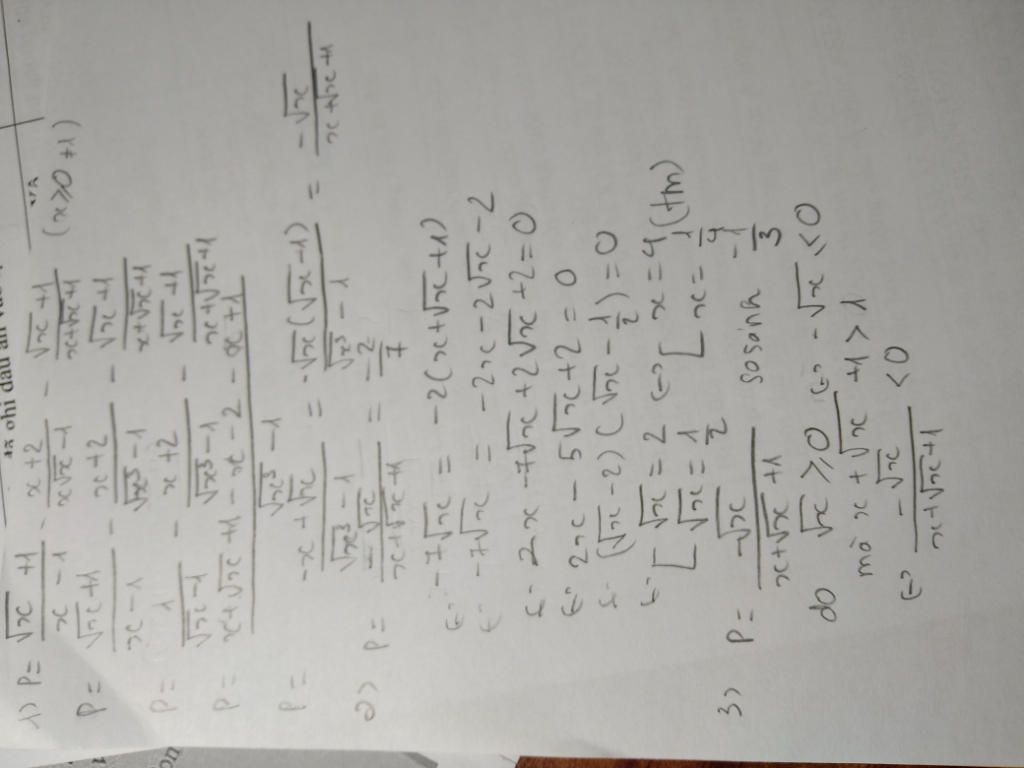 1) P = √x +1 / x -1 - x+2 / x√x -1 - √x +1 / x+√x+1 (x≥0 ≠1)
P = √x+1 / x-1 - x+2 / √x³-1 - √x+1 / x+√x+1
P = 1 / √x-1 - x+2 / √x³-1 - √x+1 / x+√x+1
P = x+√x+1 - x - 2 - x+1 / √x³ - 1
P = -x+√x / √x³-1 = -√x(√x-1) / √x³-1 = -√x / x+√x+1
2) P = -√x / x+√x+1 = -2 / 7
⇔ -7√x = -2(x+√x+1)
⇔ -7√x = -2x-2√x-2
⇔ 2x-7√x+2√x+2=0
⇔ 2x-5√x+2=0
⇔ (√x-2)(√x-1/2)=0
⇔ [ √x=2 ⇔ [ x=4 (tm)
[ √x=1/2 [ x=1/4
3) P = -√x / x+√x+1 so sánh -1/3
do √x≥0 ⇔ -√x<0
mà x+√x+1>1
⇔ -√x / x+√x+1 <0